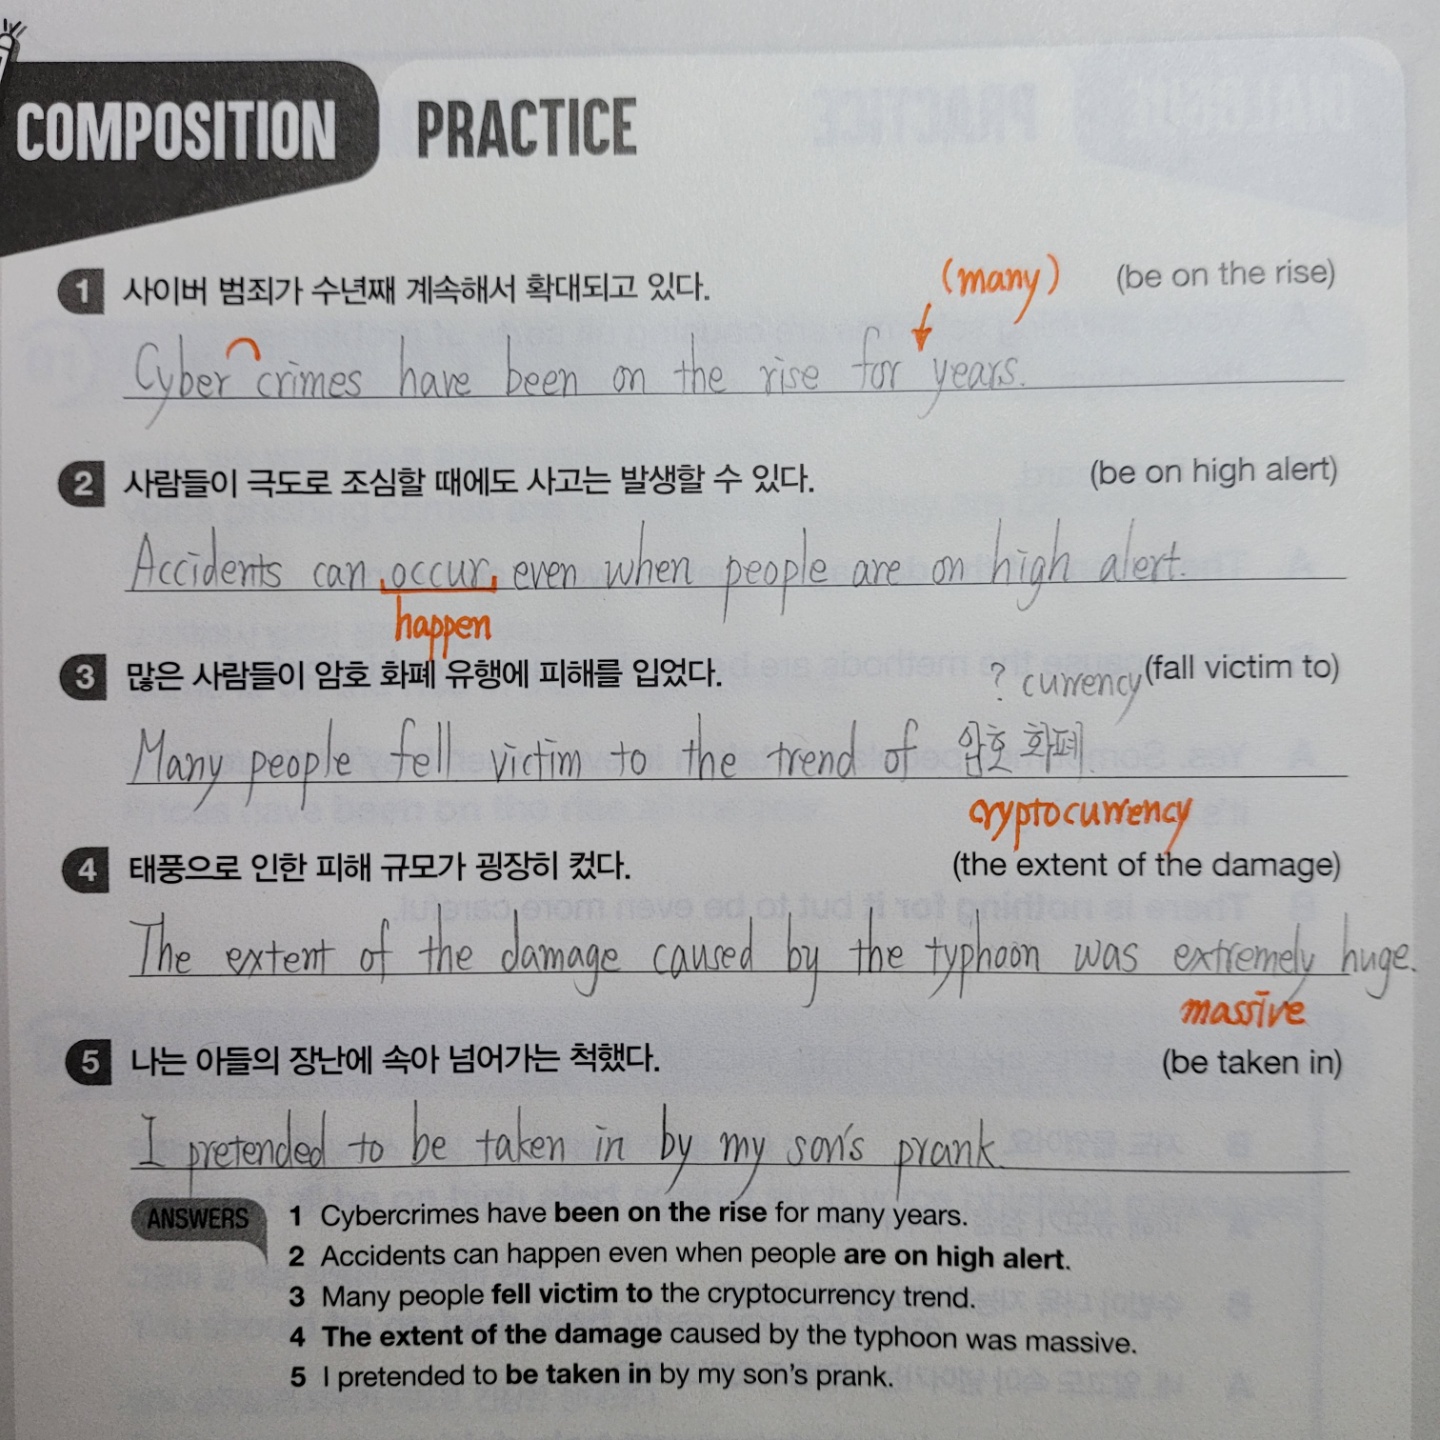 COMPOSITION PRACTICE
(many)
1 사이버 범죄가 수년째 계속해서 확대되고 있다. (be on the rise)
Cyber crimes have been on the rise for years.
2 사람들이 극도로 조심할 때에도 사고는 발생할 수 있다. (be on high alert)
Accidents can occur even when people are on high alert.
happen
3 많은 사람들이 암호 화폐 유행에 피해를 입었다. (fall victim to)
? currency
Many people fell victim to the trend of 암호 화폐.
cryptocurrency
4 태풍으로 인한 피해 규모가 굉장히 컸다. (the extent of the damage)
The extent of the damage caused by the typhoon was extremely huge.
massive
5 나는 아들의 장난에 속아 넘어가는 척했다. (be taken in)
I pretended to be taken in by my son's prank.
ANSWERS
1 Cybercrimes have been on the rise for many years.
2 Accidents can happen even when people are on high alert.
3 Many people fell victim to the cryptocurrency trend.
4 The extent of the damage caused by the typhoon was massive.
5 I pretended to be taken in by my son's prank.